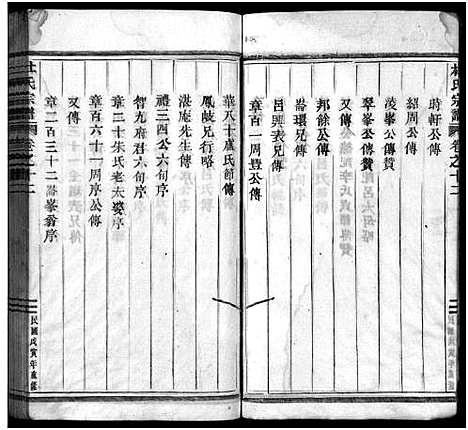 杜氏宗譜
卷之十二
民國戊寅年重修
時軒公傳
紹周公傳
淩峯公傳贊
翠峯公傳贊
又傳
邦餘公傳
崙環兄傳
呂興表兄傳
章百一周豐公傳
華八十盧氏節傳
鳳岐兄行略
湛庵先生傳
禮三四公六旬序
智九府君六旬序
章二十朱氏老夫婆序
章百六十一周序公傳
又傳
章二百三十二崙峯翁序
杜氏宗譜
卷之十二
民國戊寅年重修